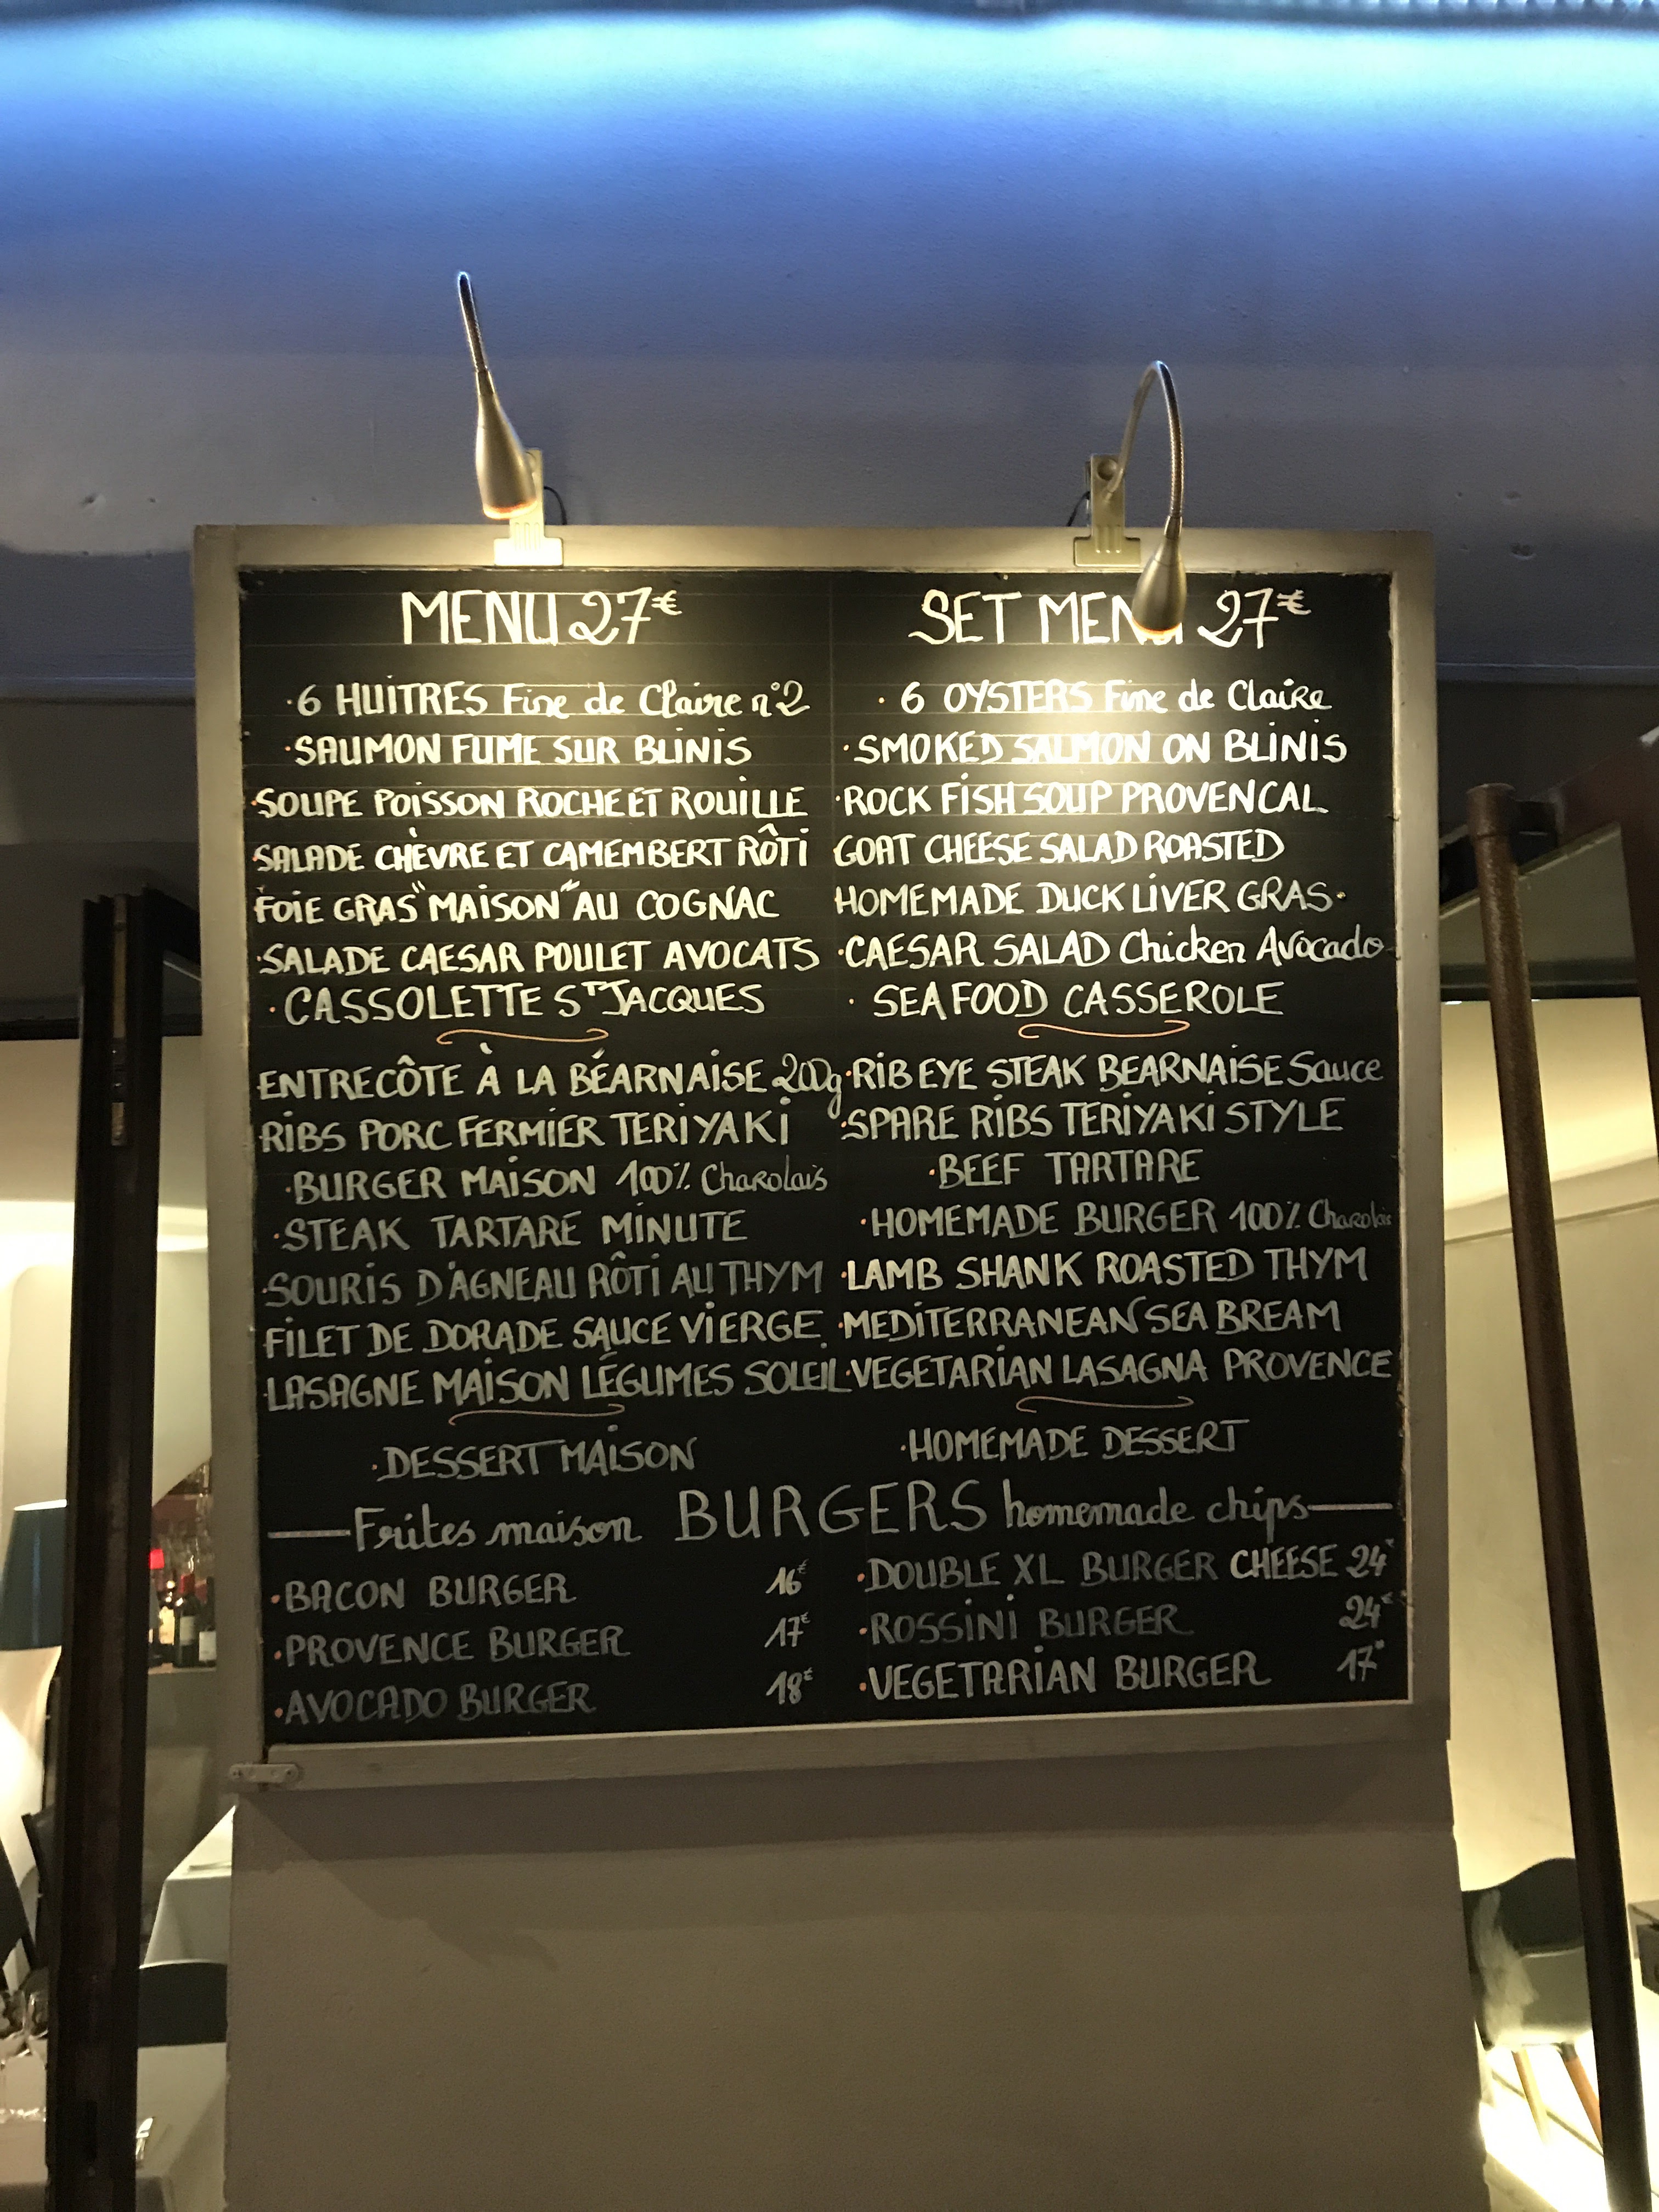 MENU 27€
·6 HUITRES Fine de Claire n°2
·SAUMON FUME SUR BLINIS
·SOUPE POISSON ROCHE ET ROUILLE
·SALADE CHÈVRE ET CAMEMBERT RÔTI
FOIE GRAS "MAISON" AU COGNAC
·SALADE CAESAR POULET AVOCATS
·CASSOLETTE ST JACQUES
ENTRECÔTE À LA BÉARNAISE 200g
RIBS PORC FERMIER TERIYAKI
·BURGER MAISON 100% Charolais
·STEAK TARTARE MINUTE
·SOURIS D'AGNEAU RÔTI AU THYM
FILET DE DORADE SAUCE VIERGE
LASAGNE MAISON LÉGUMES SOLEIL
·DESSERT MAISON
SET MENU 27€
·6 OYSTERS Fine de Claire
·SMOKED SALMON ON BLINIS
·ROCK FISH SOUP PROVENCAL
GOAT CHEESE SALAD ROASTED
HOMEMADE DUCK LIVER GRAS·
·CAESAR SALAD Chicken Avocado
·SEAFOOD CASSEROLE
·RIB EYE STEAK BEARNAISE Sauce
·SPARE RIBS TERIYAKI STYLE
·BEEF TARTARE
·HOMEMADE BURGER 100% Charolais
·LAMB SHANK ROASTED THYM
·MEDITERRANEAN SEA BREAM
·VEGETARIAN LASAGNA PROVENCE
·HOMEMADE DESSERT
Frites maison BURGERS homemade chips
·BACON BURGER 16€
·PROVENCE BURGER 17€
·AVOCADO BURGER 18€
·DOUBLE XL BURGER CHEESE 24€
·ROSSINI BURGER 24€
·VEGETARIAN BURGER 17€